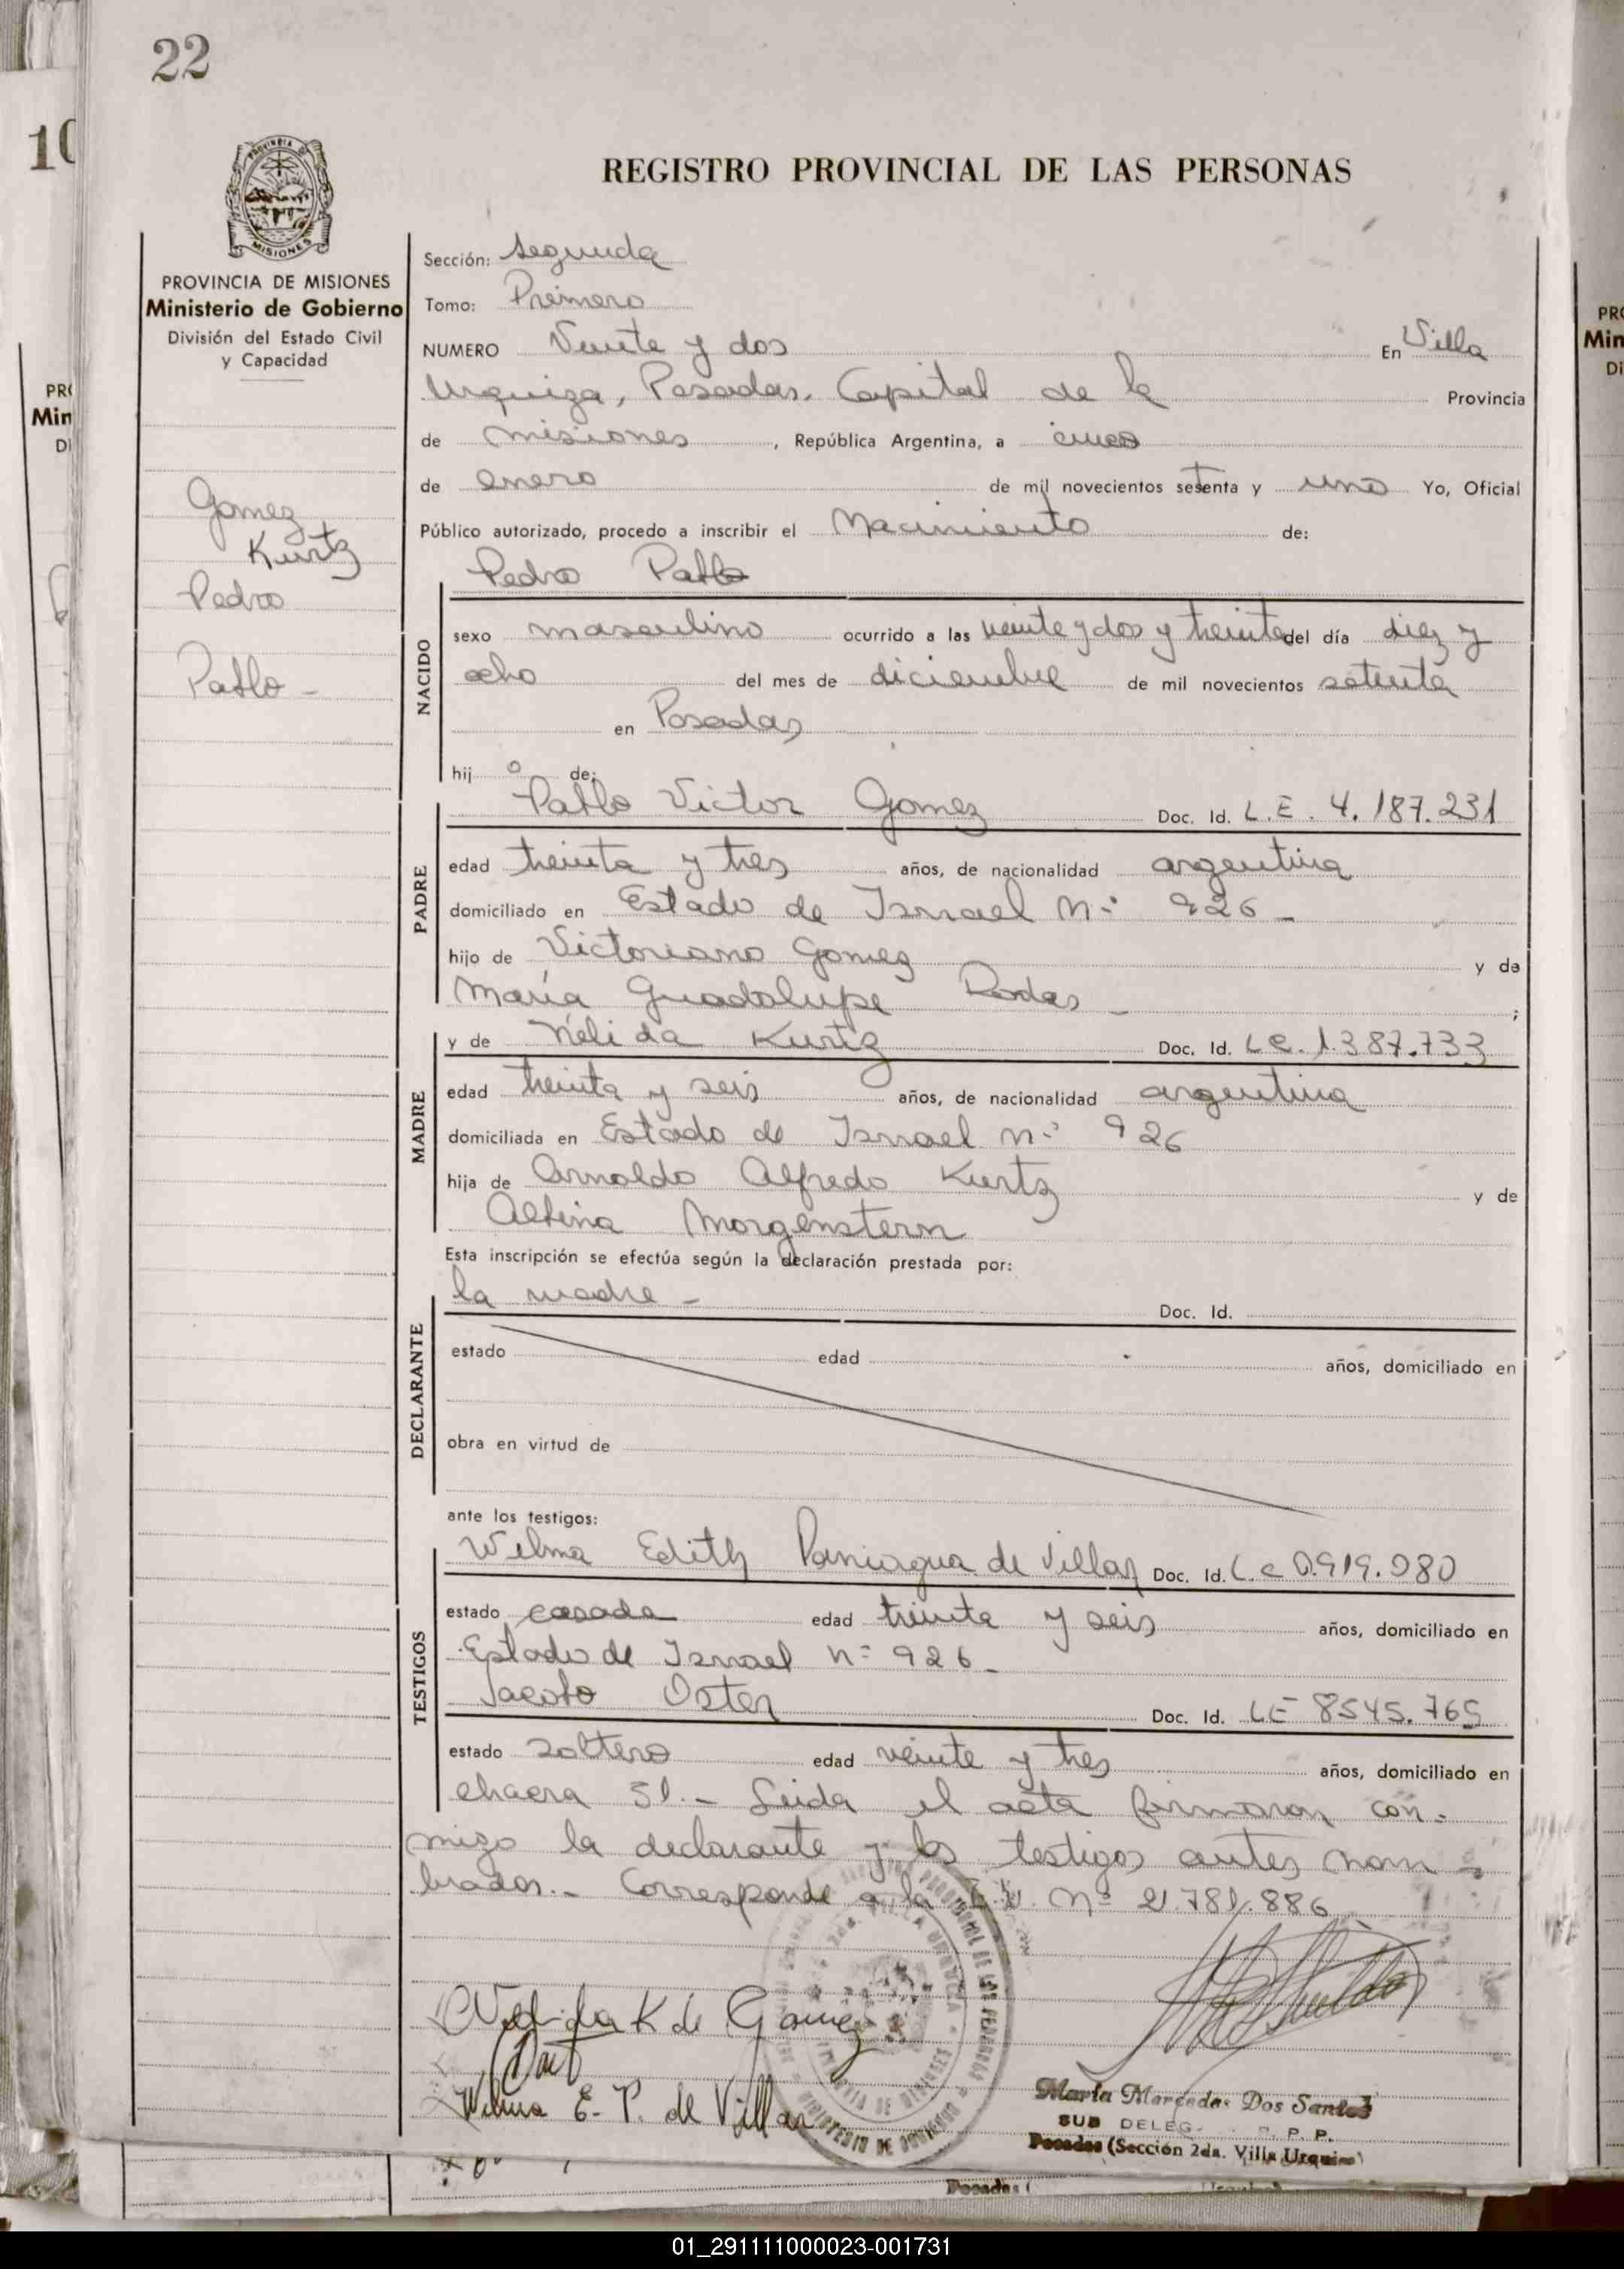 22
10
REGISTRO PROVINCIAL DE LAS PERSONAS
MISIONES
PROVINCIA DE MISIONES
Ministerio de Gobierno
División del Estado Civil
y Capacidad
Gomez
Kurtz
Pedro
Pablo -
Sección: Segunda
Tomo: Primero
NUMERO Veinte y dos En Villa
Urquiza, Posadas. Capital de la Provincia
de Misiones, República Argentina, a cinco
de enero de mil novecientos setenta y uno Yo, Oficial
Público autorizado, procedo a inscribir el Nacimiento de:
Pedro Pablo
NACIDO
sexo masculino ocurrido a las veinte y dos y treinta del día diez y
ocho del mes de diciembre de mil novecientos setenta
en Posadas
hijo de:
Pablo Victor Gomez Doc. Id. L.E. 4.187.231
PADRE
edad treinta y tres años, de nacionalidad argentina
domiciliado en Estado de Israel Nº 926 -
hijo de Victoriano Gomez y de
María Guadalupe Rodas - ;
y de Nélida Kurtz Doc. Id. L.C. 1.387.733
MADRE
edad treinta y seis años, de nacionalidad argentina
domiciliada en Estado de Israel nº 926
hija de Arnoldo Alfredo Kurtz y de
Albina Morgenstern
Esta inscripción se efectúa según la declaración prestada por:
la madre - Doc. Id.
DECLARANTE
estado edad años, domiciliado en
obra en virtud de
ante los testigos:
Wilma Edith Paniagua de Villar Doc. Id. L.C 0.919.080
TESTIGOS
estado casada edad treinta y seis años, domiciliado en
Estado de Israel nº 926 -
Jacobo Oster Doc. Id. LE 8545.765
estado soltero edad veinte y tres años, domiciliado en
chacra 51.- Leida el acta firmaron con-
migo la declarante y los testigos antes nom-
brados.- Corresponde a la Nº 21.781.886
Nelida K de Gomez
Wilma E. P. de Villar
María Mercedes Dos Santos
SUB DELEG. P. P.
Posadas (Sección 2da. Villa Urquiza)
Posadas (
01_291111000023-001731